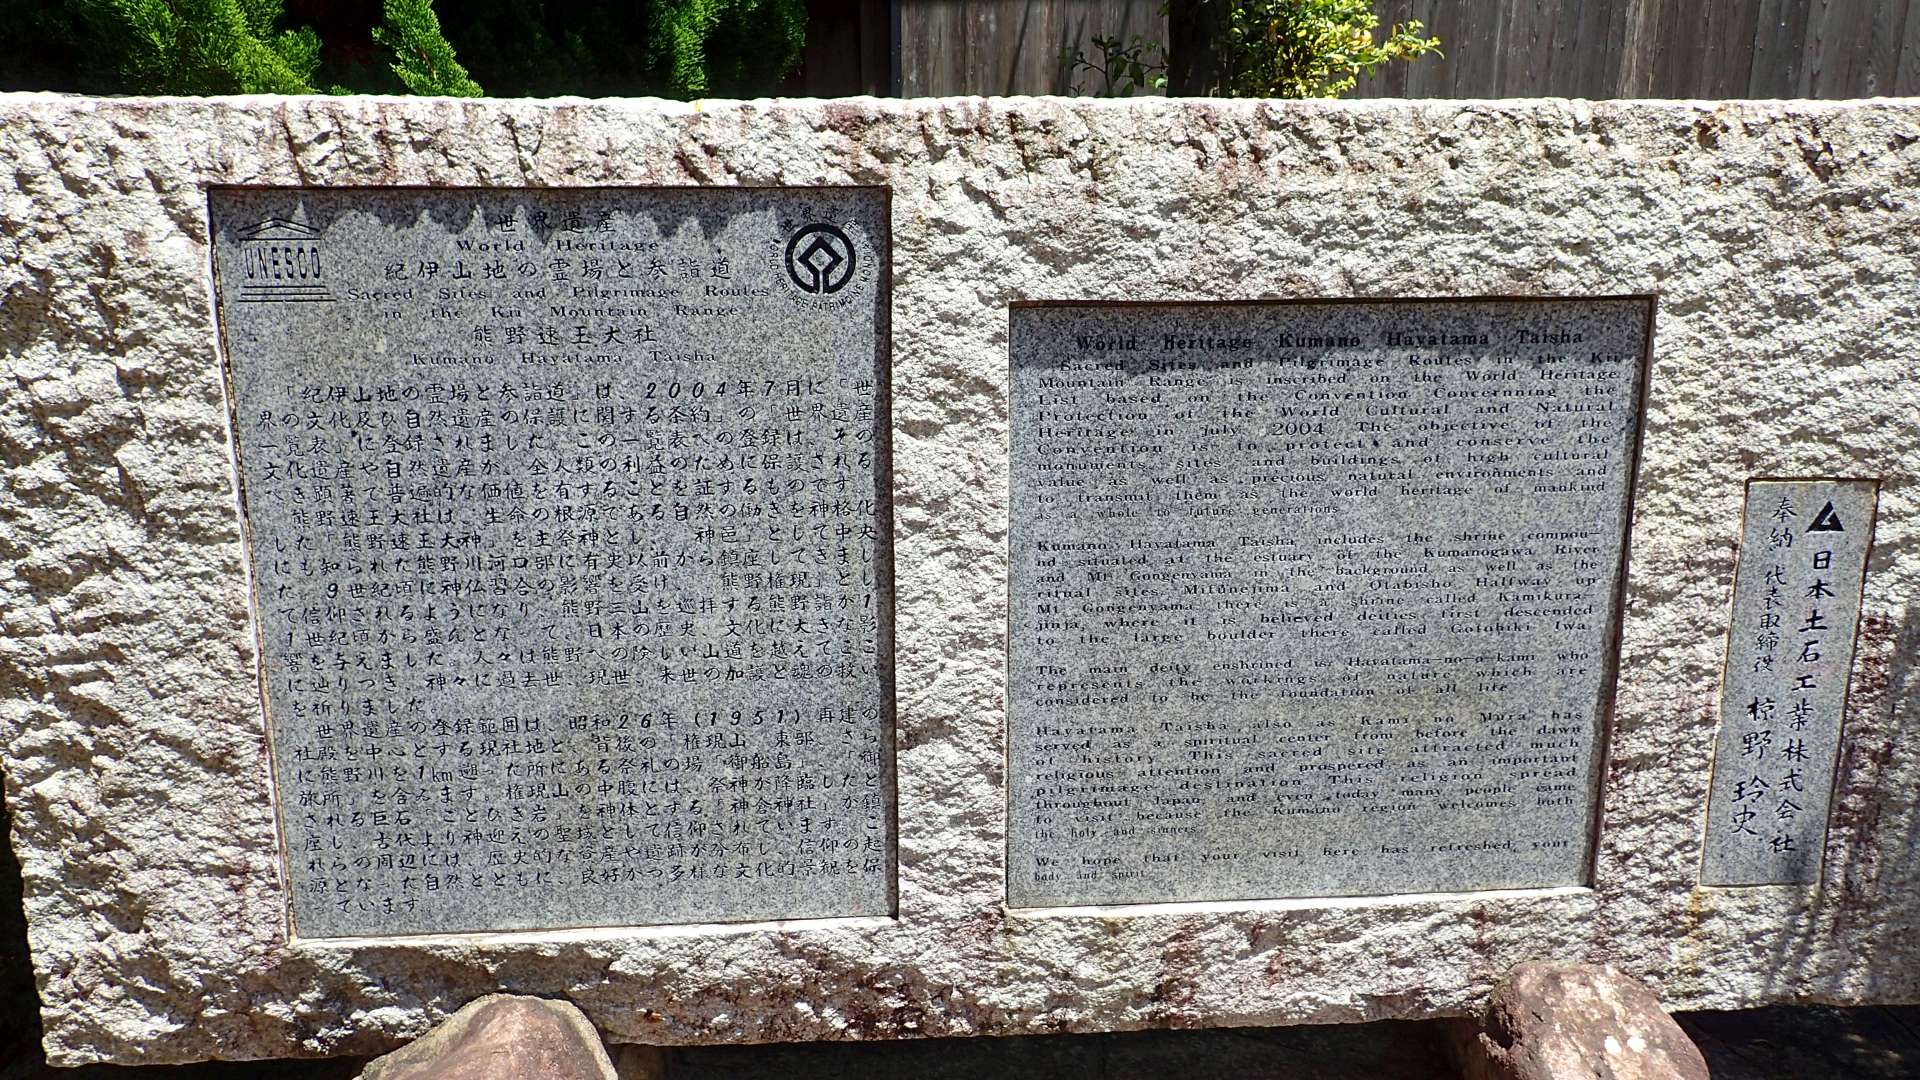 UNESCO
世界遺産
World Heritage
紀伊山地の霊場と参詣道
Sacred Sites and Pilgrimage Routes
in the Kii Mountain Range
熊野速玉大社
Kumano Hayatama Taisha
「紀伊山地の霊場と参詣道」は、2004年7月に「世
界の文化及び自然遺産の保護に関する条約」の「世界遺産
一覧表」に登録されました。この一覧表への登録は、その
文化遺産や自然遺産が、全人類の利益のため保護される
べき顕著で普遍的な価値を有することを証するものです
熊野速玉大社は、生命の根源である自然の働きをして神格化
した「熊野速玉大神」を主祭神とし、「神邑」として中央
にも知られた熊野川河口部に有史以前から鎮座してきまし
た。9世紀頃に神仏習合の影響を受け、「熊野権現」とし
て信仰されるようになり、熊野三山を巡拝する熊野詣が1
1世紀頃から盛んとなって、日本の歴史、文化に大きな影
響を与えました。人々は熊野への険しい山道を越えてこい
に辿りつき、神々に過去世、現世、来世の加護と魂の救
を祈りました。
世界遺産の登録範囲は、昭和26年(1951)再建の
社殿を中心とする現社地と、背後の「権現山」東部、さら
に熊野川を1km遡った所にある祭礼の場「御船島」、「御
旅所」を含みます。権現山の中腹には、祭神が降臨したと
される巨石「ことひき岩」を神体とする「神倉神社」が鎮
座し、古代より神迎えの聖域として信仰されています。こ
れらの周辺には、歴史的な資産や遺跡が分布し、信仰の起
源となった自然とともに、良好かつ多様な文化的景観を保
っています。
World Heritage Kumano Hayatama Taisha
Sacred Sites and Pilgrimage Routes in the Kii
Mountain Range is inscribed on the World Heritage
List based on the Convention Concernning the
Protection of the World Cultural and Natural
Heritage in July 2004. The objective of the
Convention is to protect and conserve the
monuments, sites and buildings of high cultural
value as well as precious natural environments and
to transmit them as the world heritage of mankind
as a whole to future generations.
Kumano Hayatama Taisha includes the shrine compou-
nd situated at the estuary of the Kumanogawa River
and Mt. Gongenyama in the background as well as the
ritual sites, Mifunejima and Otabisho. Halfway up
Mt. Gongenyama there is a shrine called Kamikura-
jinja, where it is believed deities first descended
to the large boulder there called Gotobiki Iwa.
The main deity enshrined is Hayatama-no-o-kami who
represents the workings of nature which are
considered to be the foundation of all life.
Hayatama Taisha also as Kami no Mura has
served as a spiritual center from before the dawn
of history. This sacred site attracted much
religious attention and prospered as an important
pilgrimage destination. This religion spread
throughout Japan, and even today many people came
to visit because the Kumano region welcomes both
the holy and sinners.
We hope that your visit here has refreshed your
body and spirit.
日本土石工業株式会社
奉納 代表取締役 椋野 玲史